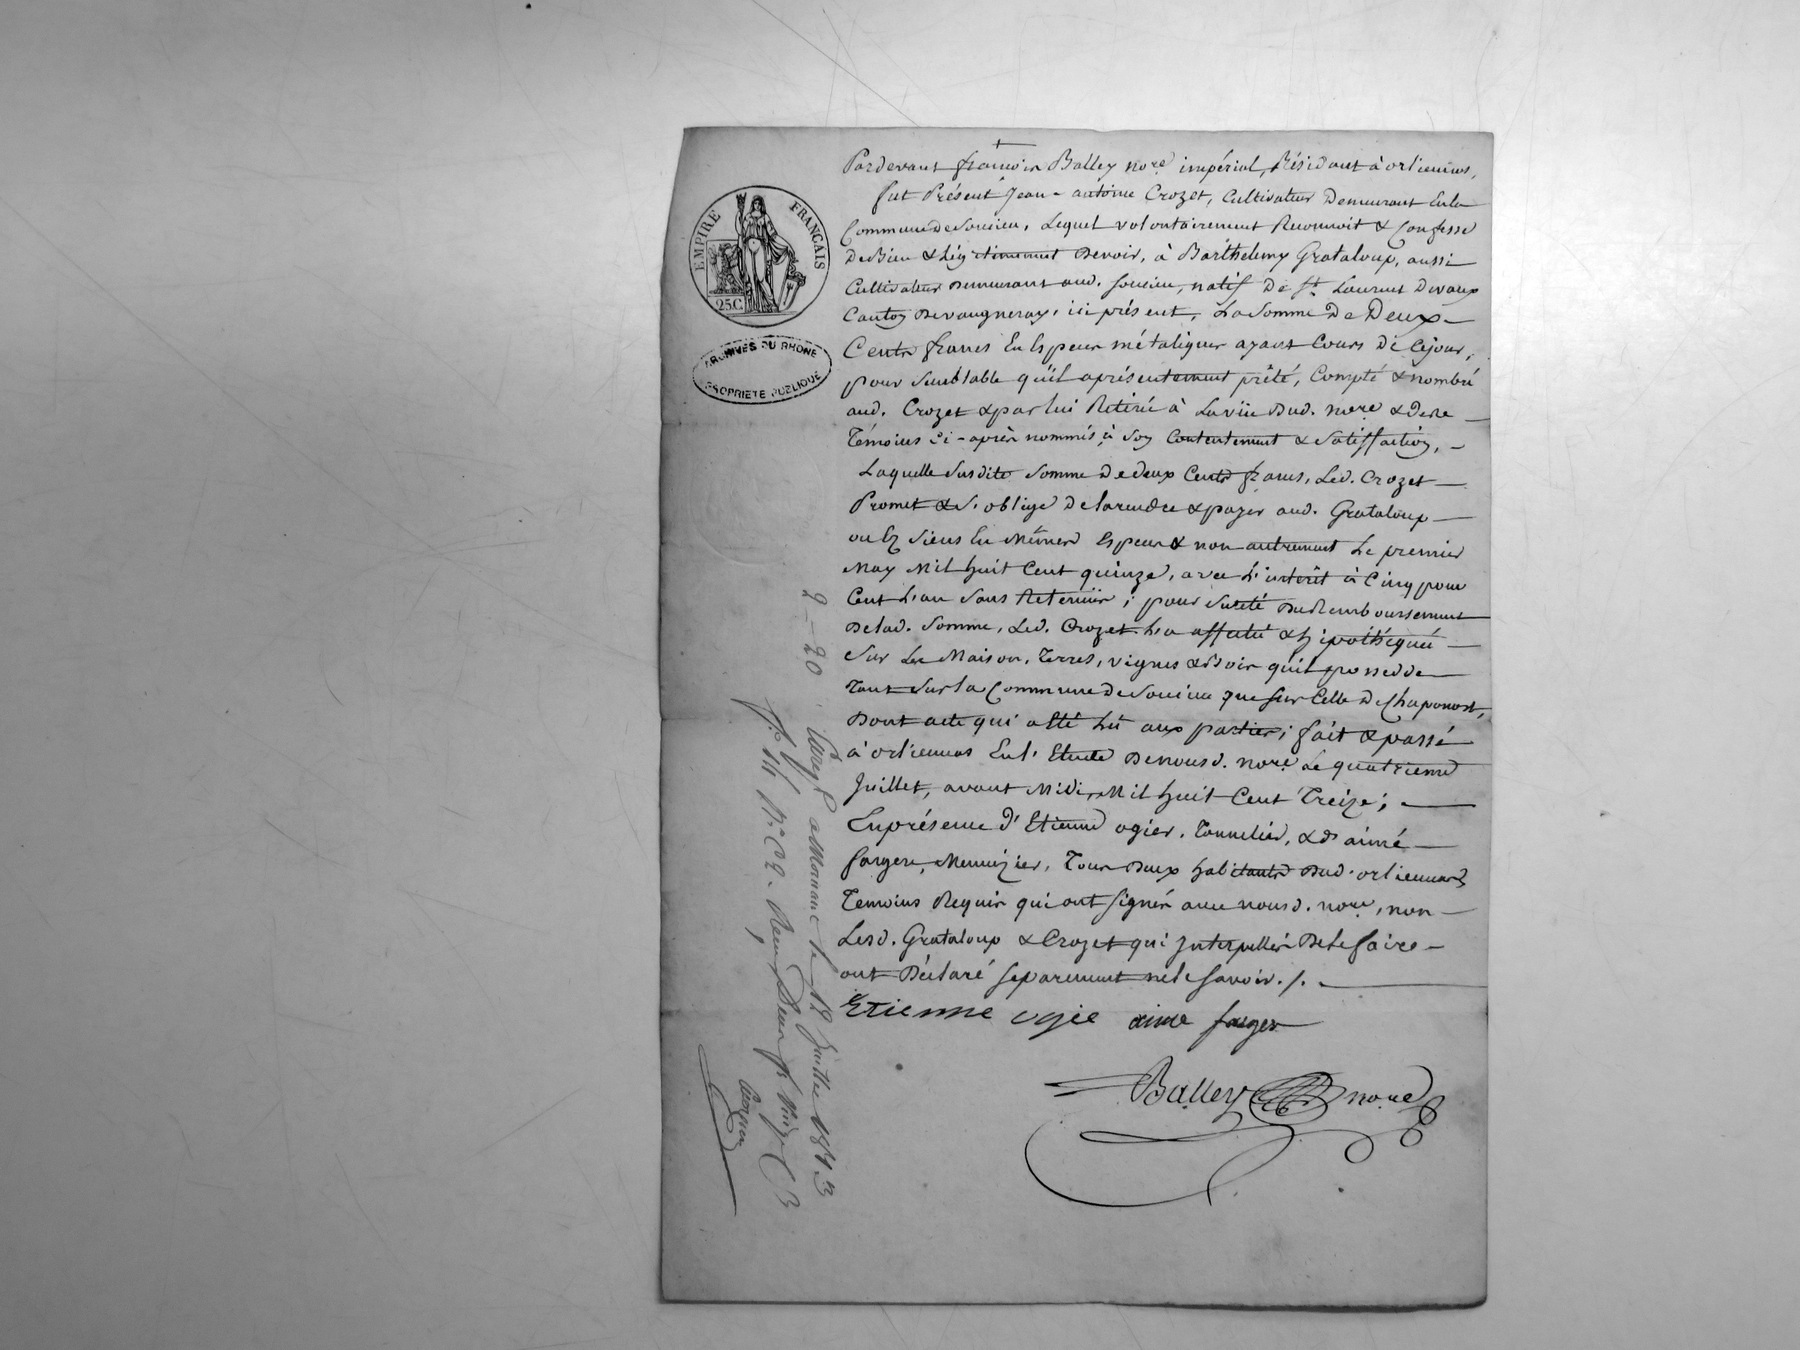 EMPIRE FRANÇAIS
25C.
ARCHIVES DU RHONE
PROPRIETE PUBLIQUE
Pardevant françois Balley nore impérial, Résidant à orlienas,
fut Présent Jean-antoine Crozet, Cultivateur Demeurant en la
Commune de Soucieu, Lequel volontairement Reconnoit & Confesse
De Bien & Légitimement Devoir, à Barthelemy Grataloup, aussi
Cultivateur Demeurant aud. Soucieu, natif De St Laurent Devaux
Canton De vaugneray, ici présent, La Somme De Deux
Cents francs En Especes métaliques ayant Cours De Cejour,
pour Semblable qu'il a présentement prêté, Compté & nombré
aud. Crozet & par lui Retiré à La vüe Dud. nore & Des
Témoins ci-après nommés, à Son Contentement & Satisfaction,
Laquelle Susdite Somme De deux Cents francs, Led. Crozet
Promet & S'oblige De La rendre & payer aud. Grataloup
ou Ez Siens En Mêmes Especes & non autrement Le premier
May Mil huit Cent quinze, avec L'interêt à Cinq pour
Cent L'an Sans Retenüe; pour Sureté Du Remboursement
De lad. Somme, Led. Crozet L'a affecté & hipothéqué
Sur Les Maison, Terres, vignes & Bois qu'il possedde
Tant Sur la Commune de Soucieu que Sur Celle De Chaponost,
Dont acte qui a Eté Lû aux parties; fait & passé
à orlienas En l'Etude De nous d. nore Le quatrieme
Juillet, avant Midi, Mil huit Cent Treize;
En présence d'Etienne ogier, Tonnelier, & d'aimé
farges, Menuizier, Tous Deux habitants Dud. orlienas
Temoins Requis qui ont Signés avec nous d. nore, non
Lesd. Grataloup & Crozet qui Interpellés De Le faire
ont Déclaré Séparement ne le Savoir./.
Etienne ogie aimé farges
Balley nore
2 - 20
a Mornant le 12 Juillet 1813